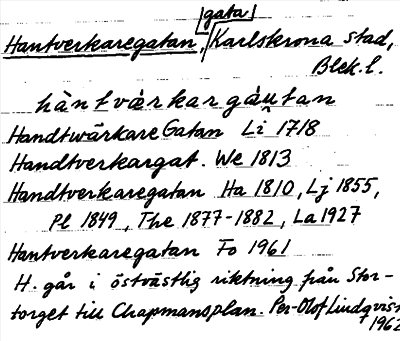 gata
Hantverkaregatan, Karlskrona stad,
Blek. l.
hàntværkargàutan
Handtwärkare Gatan Li 1718
Handtverkargat. We 1813
Handtverkaregatan Ha 1810, Lj 1855,
Pl 1849, The 1877-1882, La 1927
Hantverkaregatan Fo 1961
H. går i östvästlig riktning från Stor-
torget till Chapmansplan. Per-Olof Lindqvist
1962